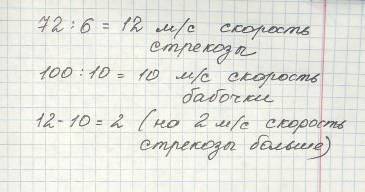 72 : 6 = 12 м/с скорость
стрекозы
100 : 10 = 10 м/с скорость
бабочки
12 - 10 = 2 (на 2 м/с скорость
стрекозы больше)